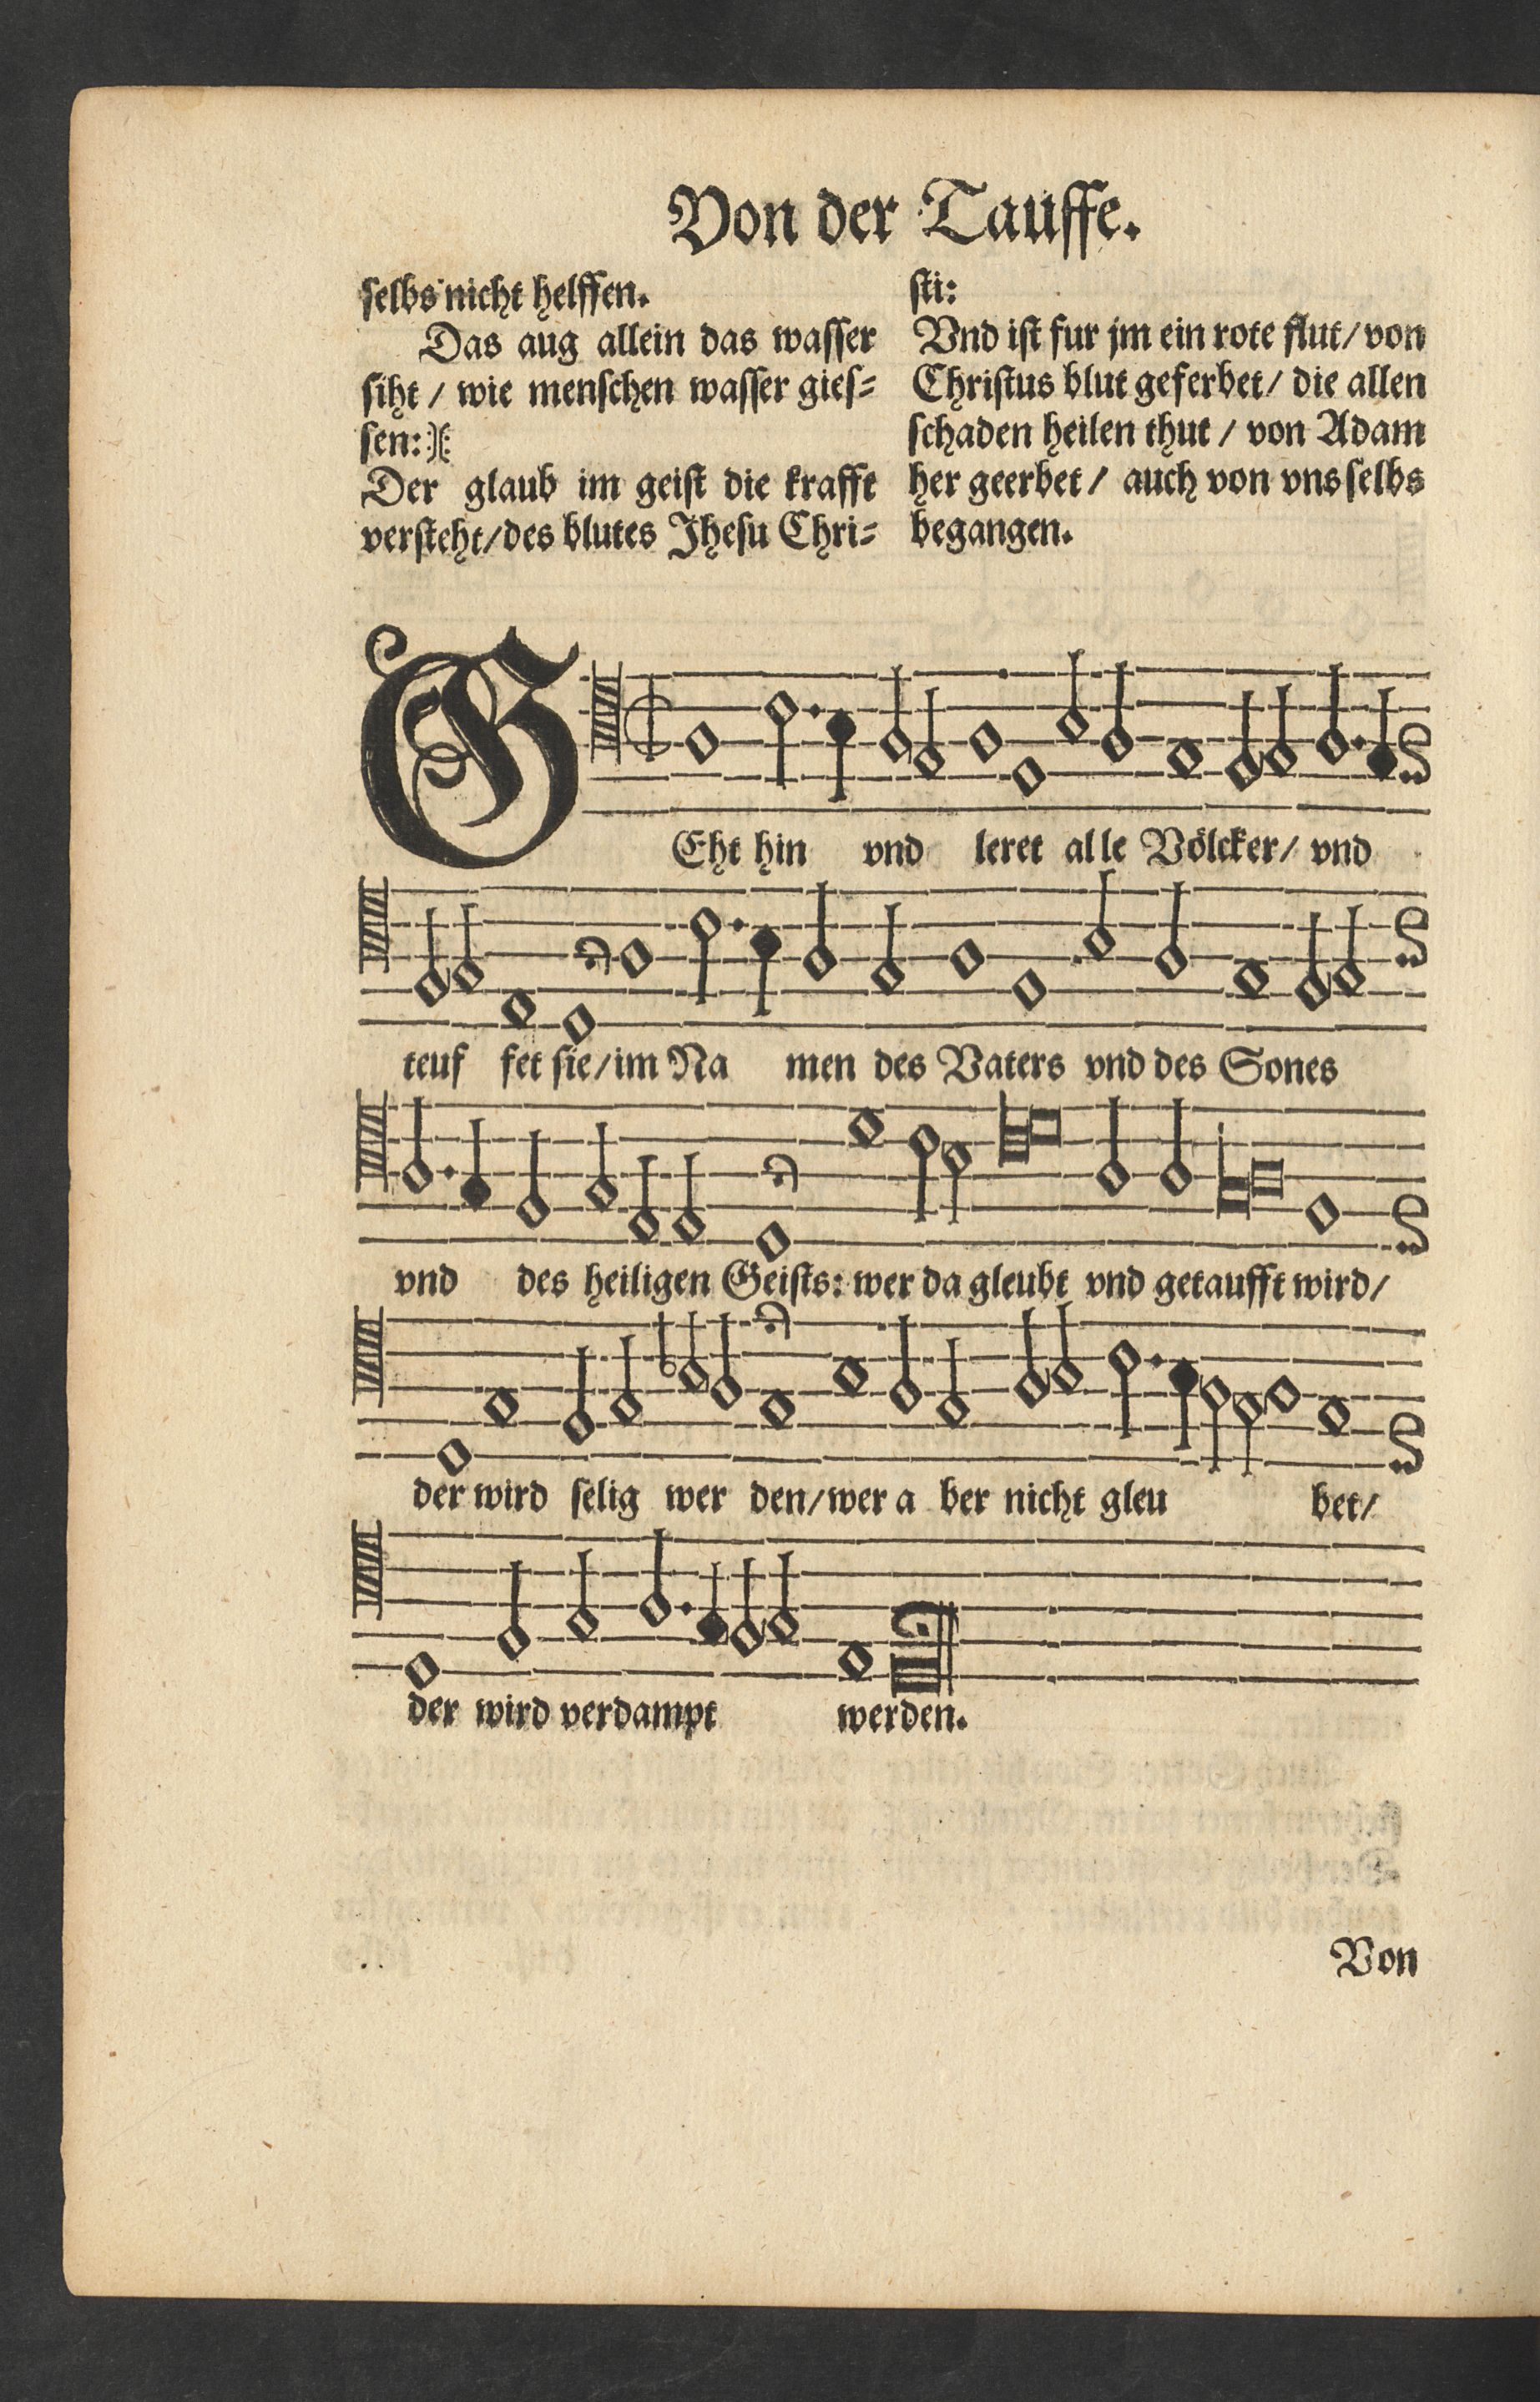 Von der Tauffe.
selbs nicht helffen.
Das aug allein das wasser
siht / wie menschen wasser gies⸗
sen:
Der glaub im geist die krafft
versteht/des blutes Jhesu Chri⸗
sti:
Vnd ist fur jm ein rote flut/von
Christus blut geferbet/ die allen
schaden heilen thut / von Adam
her geerbet / auch von vns selbs
begangen.
GEht hin vnd leret al le Völcker/ vnd
teuf fet sie/im Na men des Vaters vnd des Sones
vnd des heiligen Geists: wer da gleubt vnd getaufft wird/
der wird selig wer den/wer a ber nicht gleu bet/
der wird verdampt werden.
Von